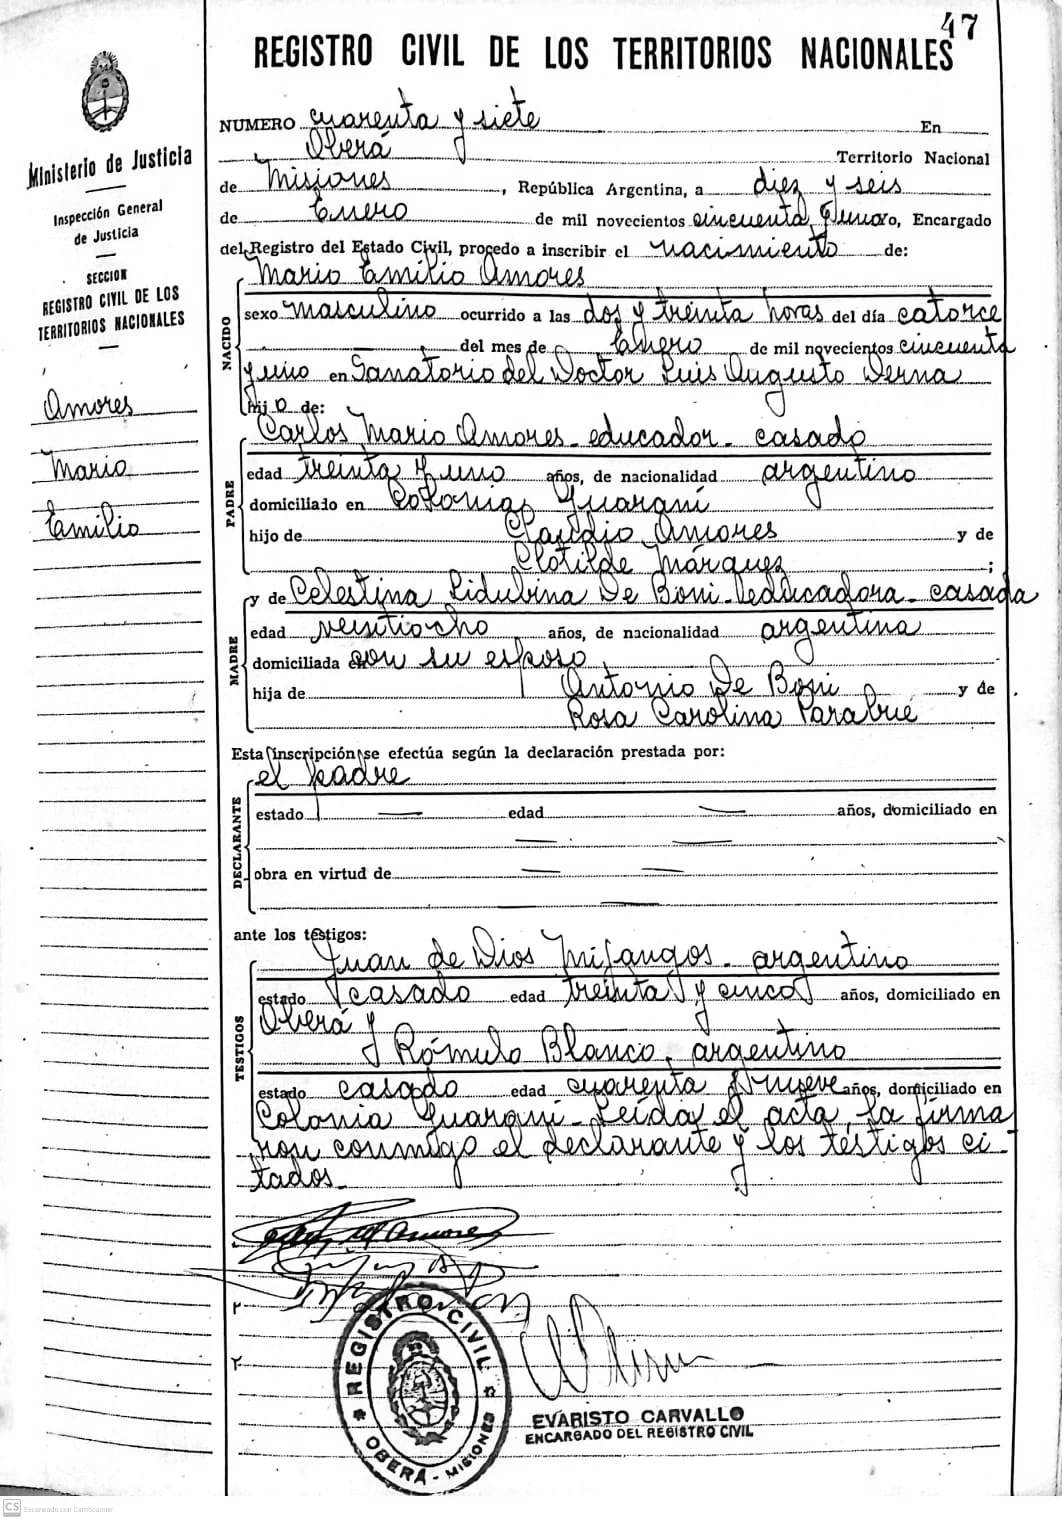 47
REGISTRO CIVIL DE LOS TERRITORIOS NACIONALES
Ministerio de Justicia
Inspección General
de Justicia
SECCION
REGISTRO CIVIL DE LOS
TERRITORIOS NACIONALES
Amores
Mario
Emilio
NUMERO cuarenta y siete En
Oberá Territorio Nacional
de Misiones, República Argentina, a diez y seis
de Enero de mil novecientos cincuenta y uno, Encargado
del Registro del Estado Civil, procedo a inscribir el nacimiento de:
NACIDO
Mario Emilio Amores
sexo masculino ocurrido a las dos y treinta horas del día catorce
del mes de Enero de mil novecientos cincuenta
y uno en Sanatorio del Doctor Luis Augusto Derna
hijo de:
PADRE
Carlos Mario Amores - educador - casado
edad treinta y uno años, de nacionalidad argentino
domiciliado en Colonia Guaraní
hijo de Claudio Amores y de
Clotilde Márquez;
MADRE
y de Celestina Lidubina De Boni - educadora - casada
edad veintiocho años, de nacionalidad argentina
domiciliada en con su esposo
hija de Antonio De Boni y de
Rosa Carolina Parabue
Esta inscripción se efectúa según la declaración prestada por:
DECLARANTE
el padre
estado — edad — años, domiciliado en
— —
obra en virtud de — —
— —
ante los testigos:
TESTIGOS
Juan de Dios Mifangos - argentino
estado casado edad treinta y cinco años, domiciliado en
Oberá y
Rómulo Blanco, argentino
estado casado edad cuarenta y nueve años, domiciliado en
Colonia Guaraní - Leída el acta, la firma
ron conmigo el declarante y los testigos ci-
tados.
Amores
REGISTRO CIVIL
OBERÁ - MISIONES
EVARISTO CARVALLO
ENCARGADO DEL REGISTRO CIVIL
CS Escaneado con CamScanner